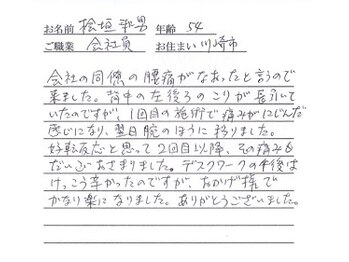 お名前 桧垣 平男 年齢 54
ご職業 会社員 お住まい 川崎市
会社の同僚の腰痛がなおったと言うので
来ました。背中の左後ろのこりが長引いて
いたのですが、1回目の施術で痛みがにじんだ
感じになり、翌日腕のほうに移りました。
好転反応と思って2回目以降、その痛みも
だいぶおさまりました。デスクワークの午後は
けっこう辛かったのですが、おかげ様で
かなり楽になりました。ありがとうございました。